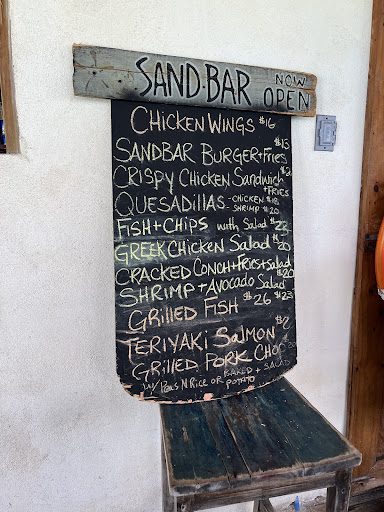 SAND·BAR NOW OPEN
CHICKEN WINGS $16
SANDBAR BURGER + FRIES $13
CRISPY CHICKEN SANDWICH + FRIES
QUESADILLAS - CHICKEN $18
- SHRIMP $20
FISH + CHIPS with SALAD $22
GREEK CHICKEN SALAD $20
CRACKED CONCH + FRIES + SALAD $20
SHRIMP + AVOCADO SALAD $23
GRILLED FISH $26
TERIYAKI SALMON
GRILLED PORK CHOP
BAKED + SALAD
W/ PEAS N RICE OR POTATO